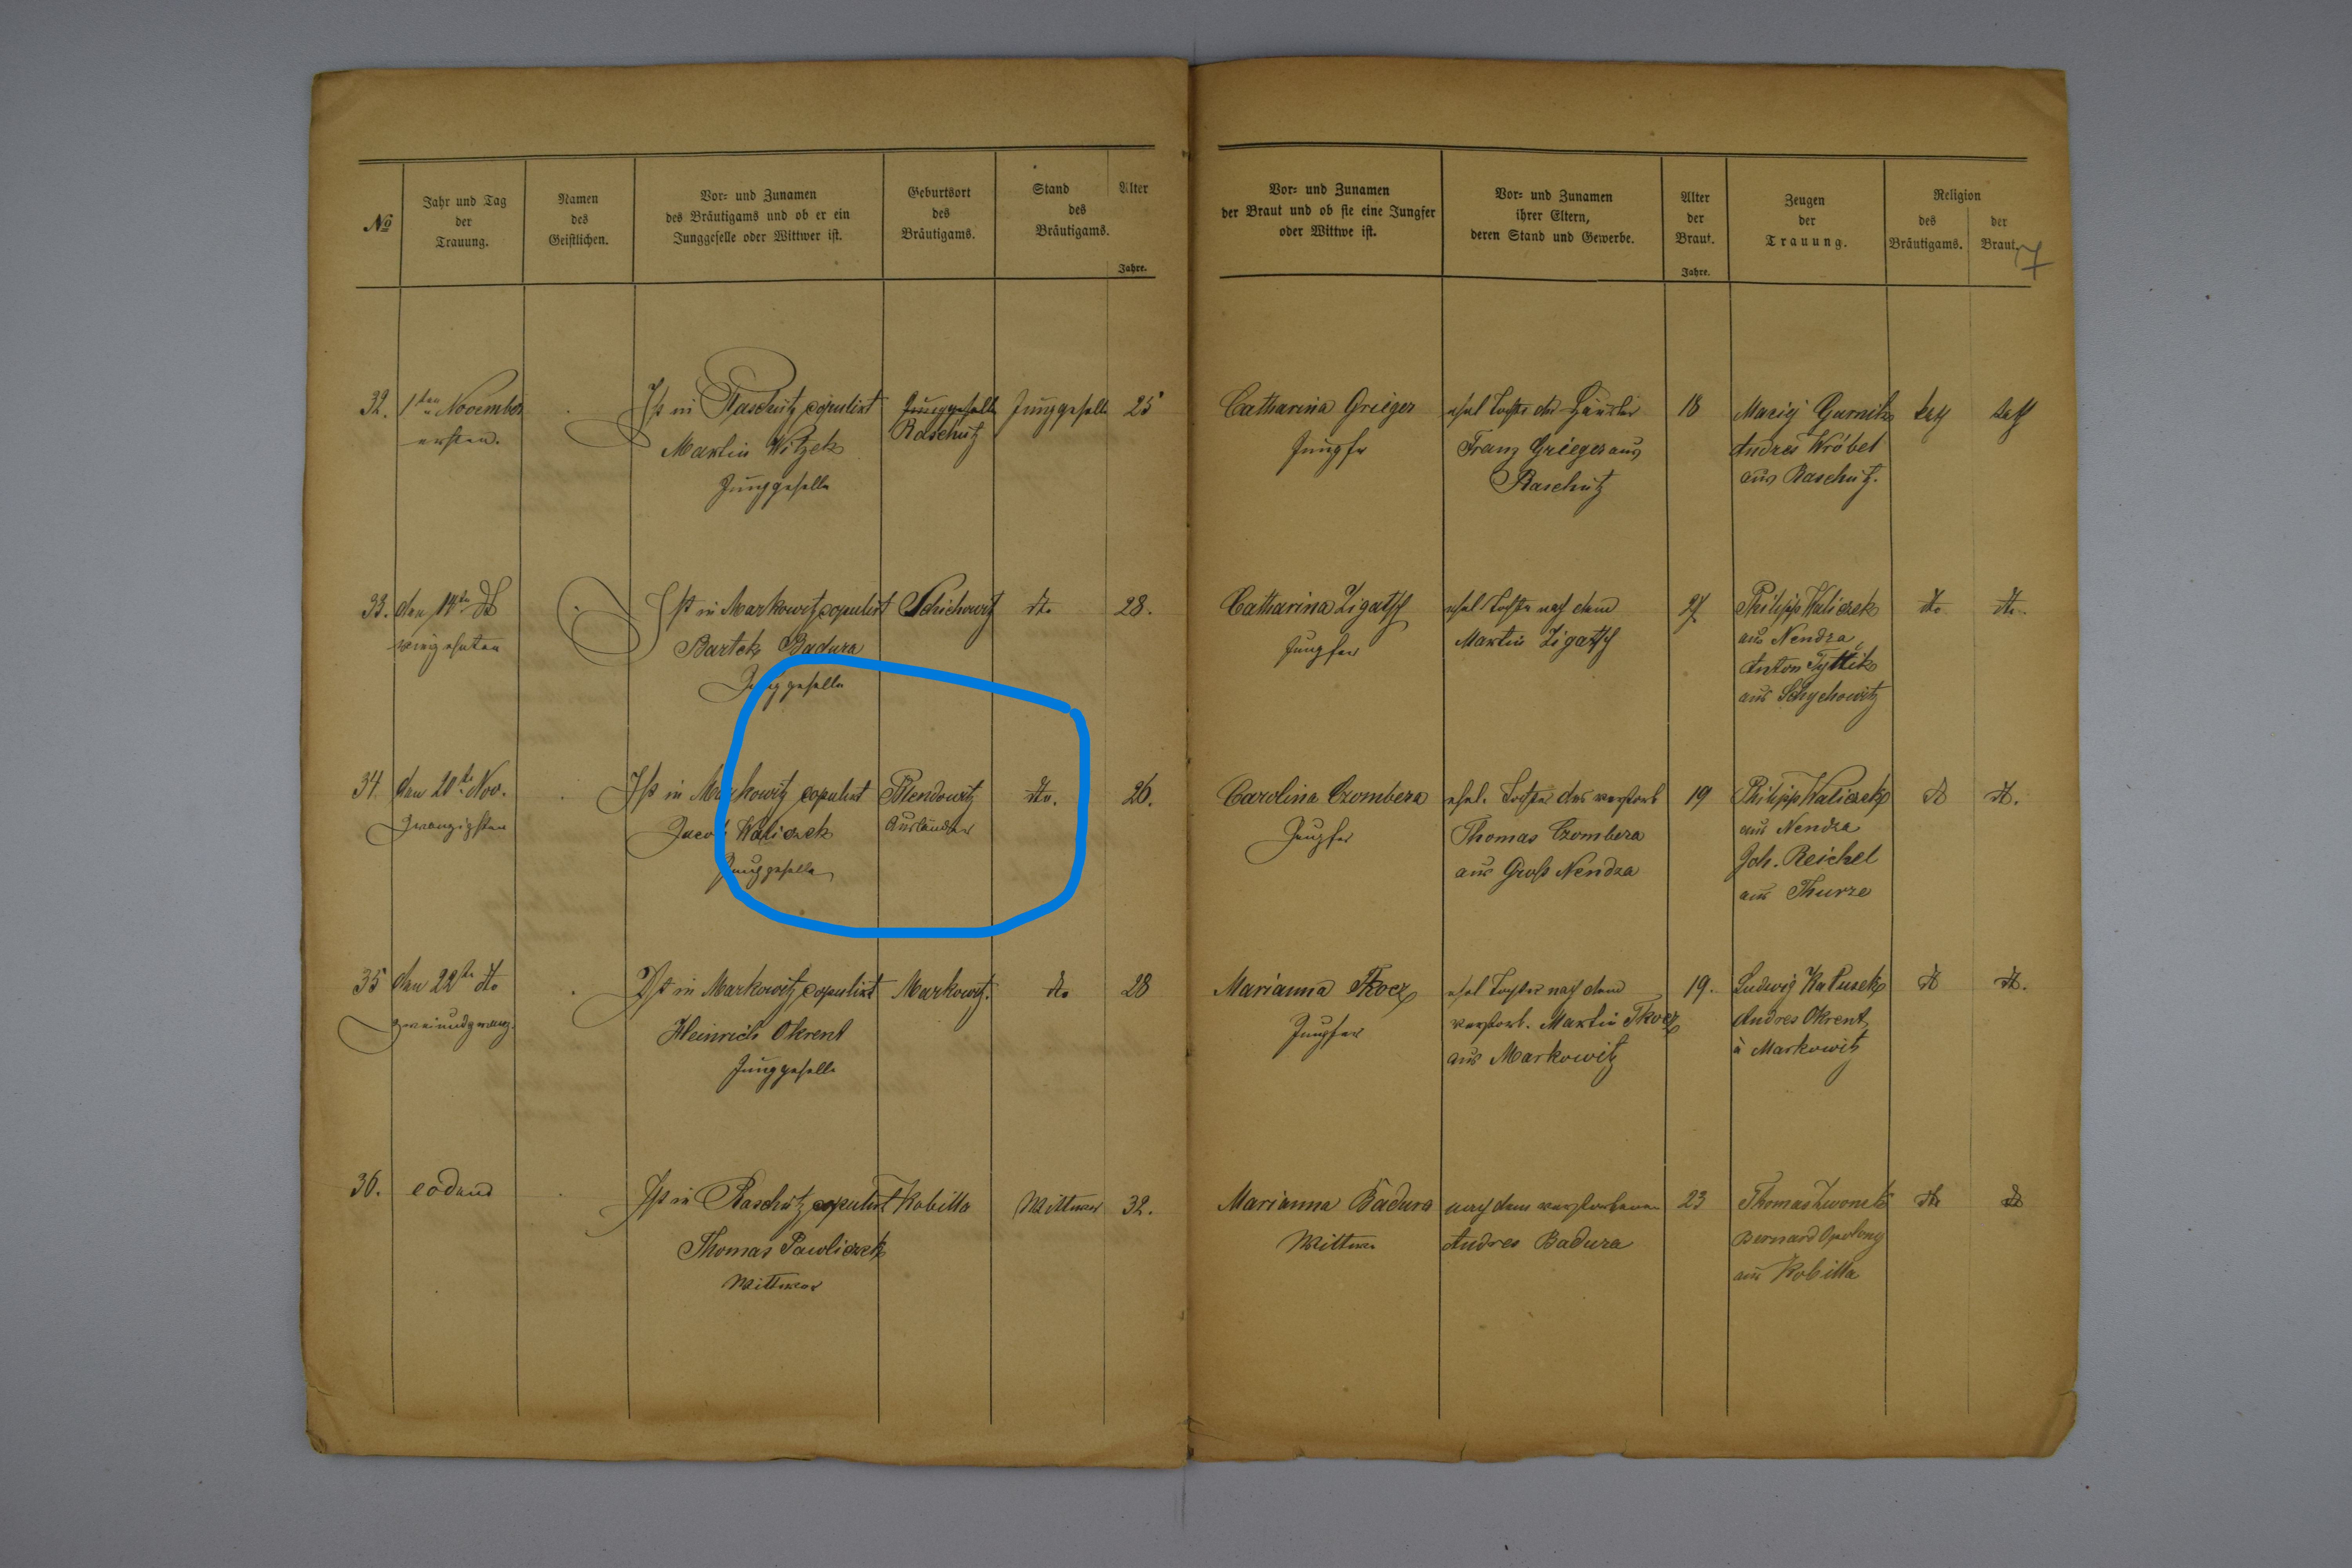 №
Jahr und Tag
der
Trauung.
Namen
des
Geistlichen.
Vor= und Zunamen
des Bräutigams und ob er ein
Junggeselle oder Wittwer ist.
Geburtsort
des
Bräutigams.
Stand
des
Bräutigams.
Alter
Jahre.
Vor= und Zunamen
der Braut und ob sie eine Jungfer
oder Wittwe ist.
Vor= und Zunamen
ihrer Eltern,
deren Stand und Gewerbe.
Alter
der
Braut.
Jahre.
Zeugen
der
Trauung.
Religion
des
Bräutigams.
der
Braut.
7
32.
1ten November
ersten.
Ist in Raschütz copulirt
Martin Witzek
Junggeselle
Junggeselle
Raschütz
Junggeselle
25
Catharina Grieger
Jungfer
ehel Tochter des Häusler
Franz Grieger aus
Raschütz
18
Andres Wróbel
aus Raschütz.
kath
kath
33.
den 14ten
vierzehnten
Ist in Markowitz copulirt
Bartek Badura
Junggeselle
Schichowitz
dto
28.
Catharina Zigatsch
Jungfer
ehel Tochter nach dem
Martin Zigatsch
Philipp Waliczek
aus Nendza
Anton
aus Schychowitz
dto
dto.
34
den 20te Nov.
Zwanzigsten
Ist in Markowitz copulirt
Jacob Waliczek
Junggeselle
Plendowitz
Ausländer
dto.
26.
Carolina Czombera
Jungfer
ehel. Tochter des verstorb
Thomas Czombera
aus Groß Nendza
19
Philipp Waliczek
aus Nendza
Joh. Reichel
aus Thurze
dt
dt.
35
den 22te dto
zweiundzwanz.
Ist in Markowitz copulirt
Heinrich Okrent
Junggeselle
Markowitz.
dto
28
Marianna Tkocz
Jungfer
ehel Tochter nach dem
verstorb. Martin Tkocz
aus Markowitz
19.
Ludwig Kalusek
Andres Okrent
à Markowitz
dt
dt.
36.
eodem
Ist in Raschütz copulirt
Thomas Pawliczek
Wittwer
Kobilla
Wittwer
32.
Marianna Badura
Wittwe
nach dem verstorbenen
Andres Badura
23
Thomas
Bernard
aus Kobilla
dto
dt